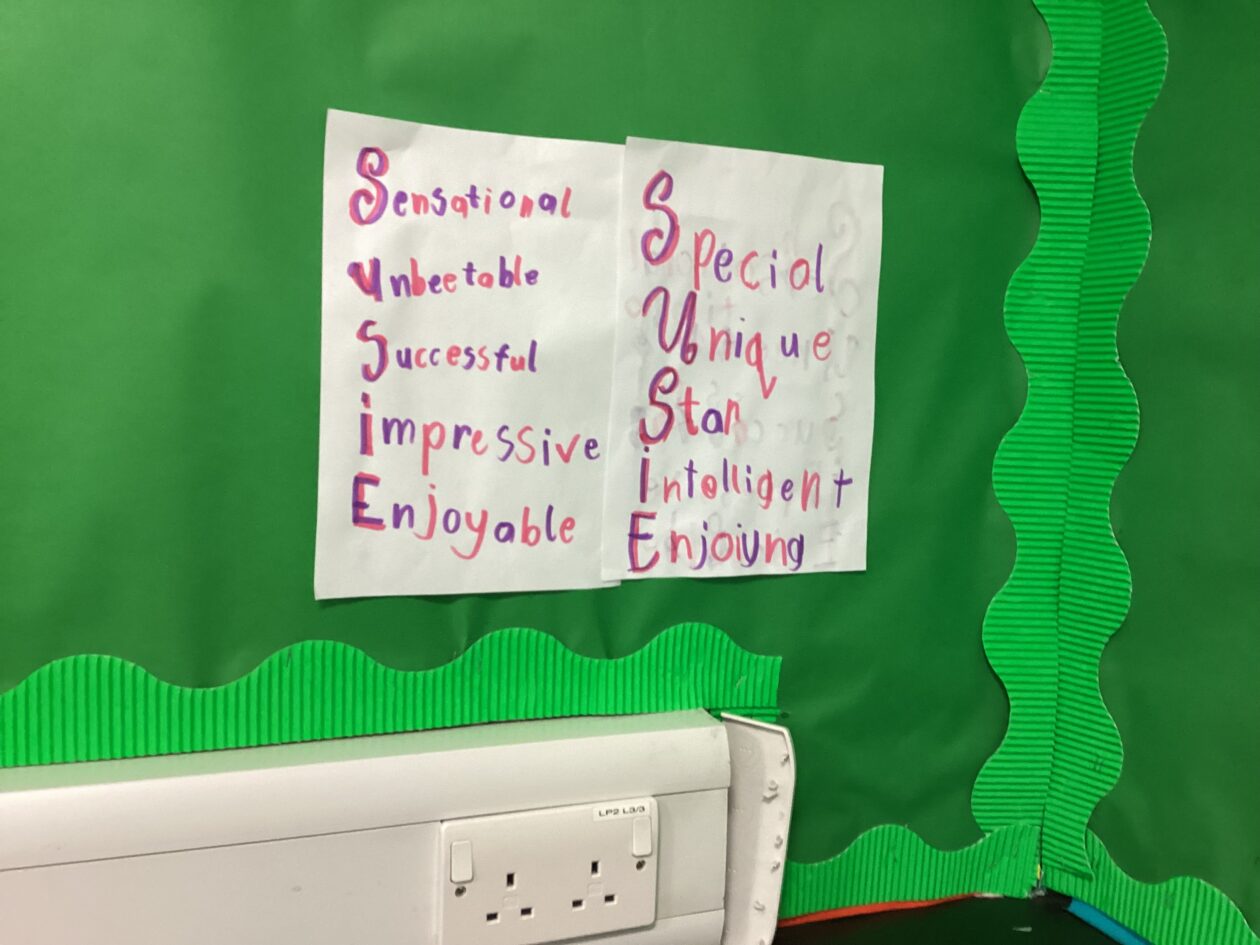 Sensational
Unbeetable
Successful
impressive
Enjoyable
Special
Unique
Star
intelligent
Enjoiyng
LP2 L3/3